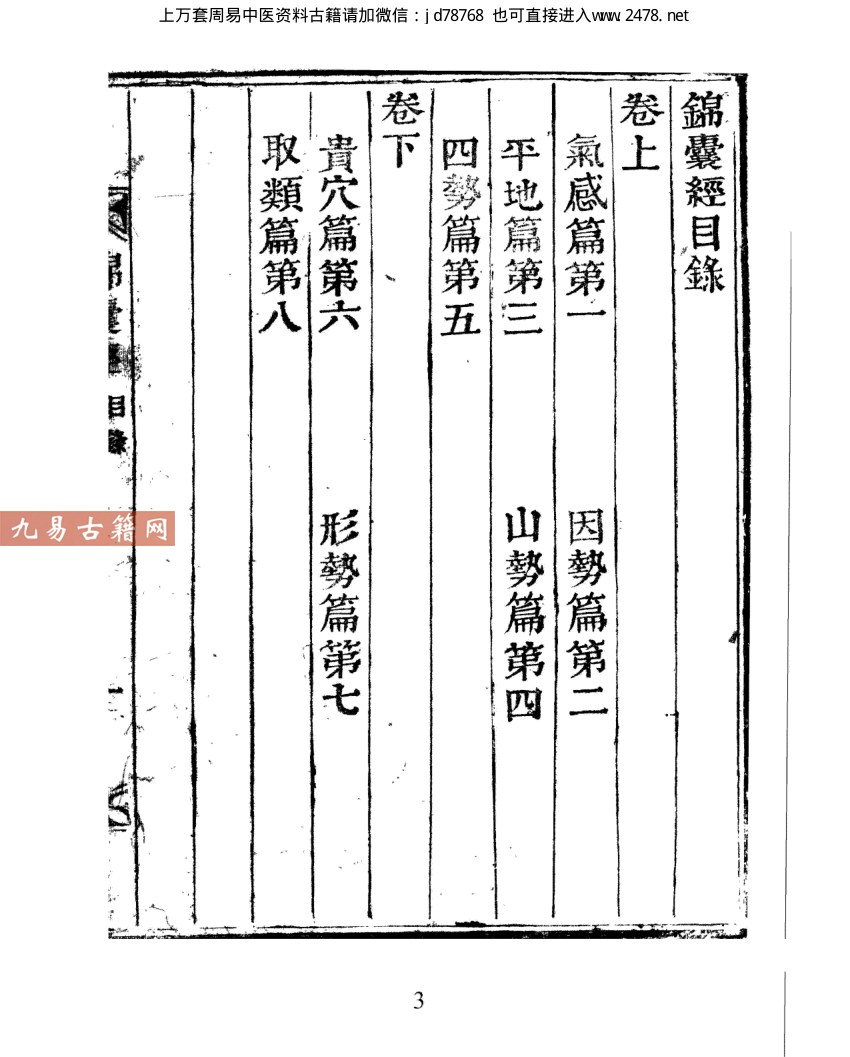 上万套周易中医资料古籍请加微信：jd78768 也可直接进入www.2478.net
錦囊經目錄
卷上
氣感篇第一 因勢篇第二
平地篇第三 山勢篇第四
四勢篇第五
卷下
貴穴篇第六 形勢篇第七
取類篇第八
錦囊 目錄
一
九易古籍网
3